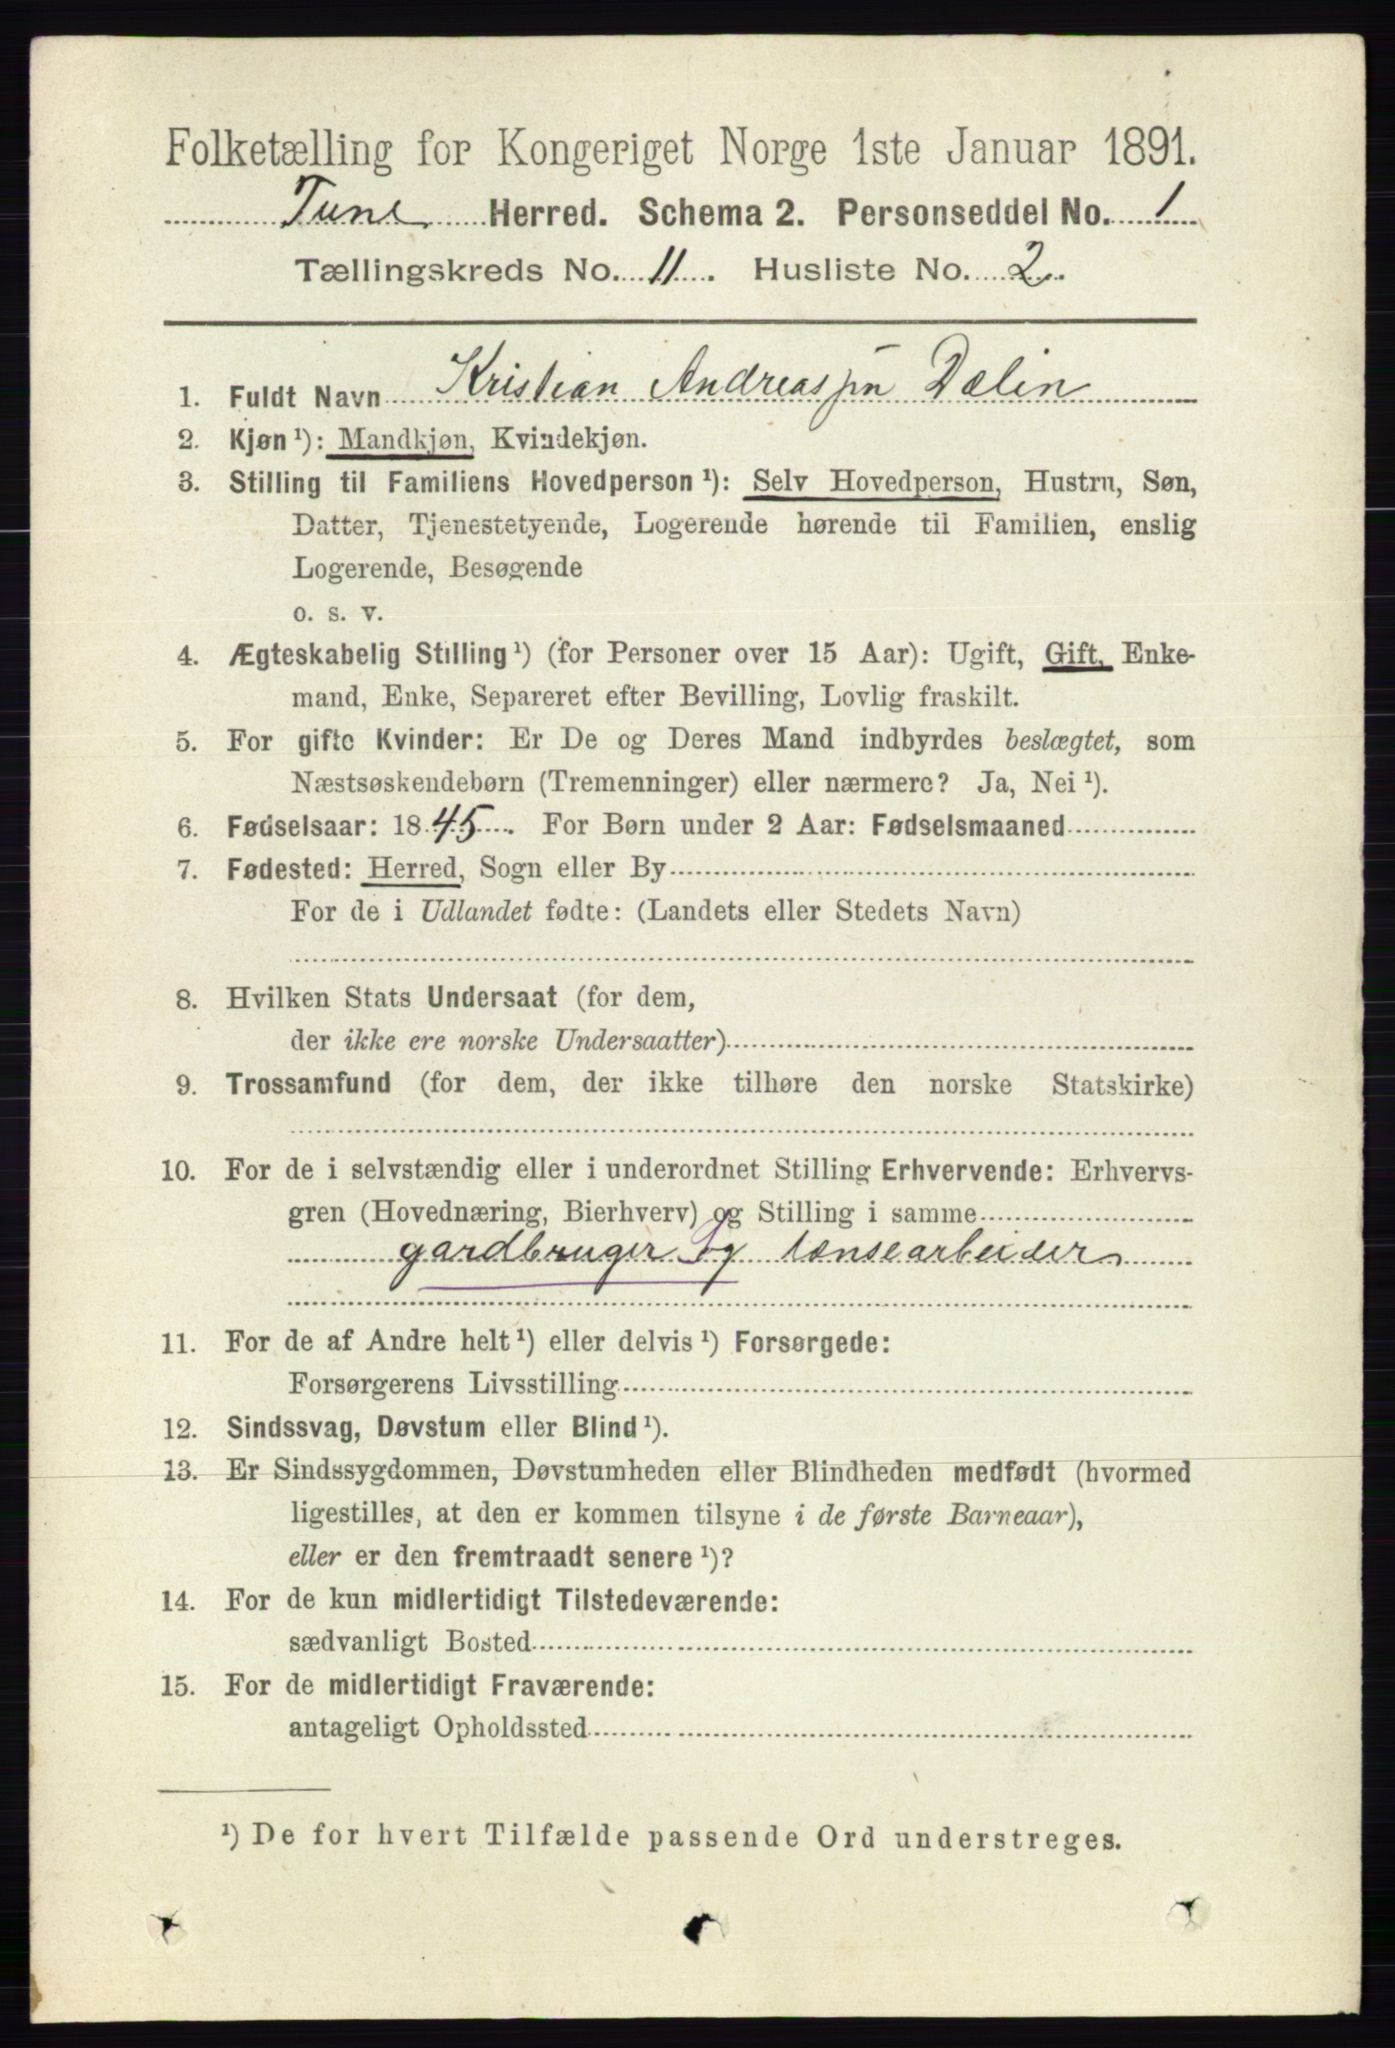 Folketælling for Kongeriget Norge 1ste Januar 1891.
Tune Herred. Schema 2. Personseddel No. 1
Tællingskreds No. 11. Husliste No. 2.
1. Fuldt Navn Kristian Andreassn Dælin
2. Kjøn ¹): Mandkjøn, Kvindekjøn.
3. Stilling til Familiens Hovedperson ¹): Selv Hovedperson, Hustru, Søn,
Datter, Tjenestetyende, Logerende hørende til Familien, enslig
Logerende, Besøgende
o. s. v.
4. Ægteskabelig Stilling ¹) (for Personer over 15 Aar): Ugift, Gift, Enke-
mand, Enke, Separeret efter Bevilling, Lovlig fraskilt.
5. For gifte Kvinder: Er De og Deres Mand indbyrdes beslægtet, som
Næstsøskendebørn (Tremenninger) eller nærmere? Ja, Nei ¹).
6. Fødselsaar: 1845. For Børn under 2 Aar: Fødselsmaaned
7. Fødested: Herred, Sogn eller By
For de i Udlandet fødte: (Landets eller Stedets Navn)
8. Hvilken Stats Undersaat (for dem,
der ikke ere norske Undersaatter)
9. Trossamfund (for dem, der ikke tilhøre den norske Statskirke)
10. For de i selvstændig eller i underordnet Stilling Erhvervende: Erhvervs-
gren (Hovednæring, Bierhverv) og Stilling i samme
gardbruger og lænsearbeider
11. For de af Andre helt ¹) eller delvis ¹) Forsørgede:
Forsørgerens Livsstilling
12. Sindssvag, Døvstum eller Blind ¹).
13. Er Sindssygdommen, Døvstumheden eller Blindheden medfødt (hvormed
ligestilles, at den er kommen tilsyne i de første Barneaar),
eller er den fremtraadt senere ¹)?
14. For de kun midlertidigt Tilstedeværende:
sædvanligt Bosted
15. For de midlertidigt Fraværende:
antageligt Opholdssted
¹) De for hvert Tilfælde passende Ord understreges.